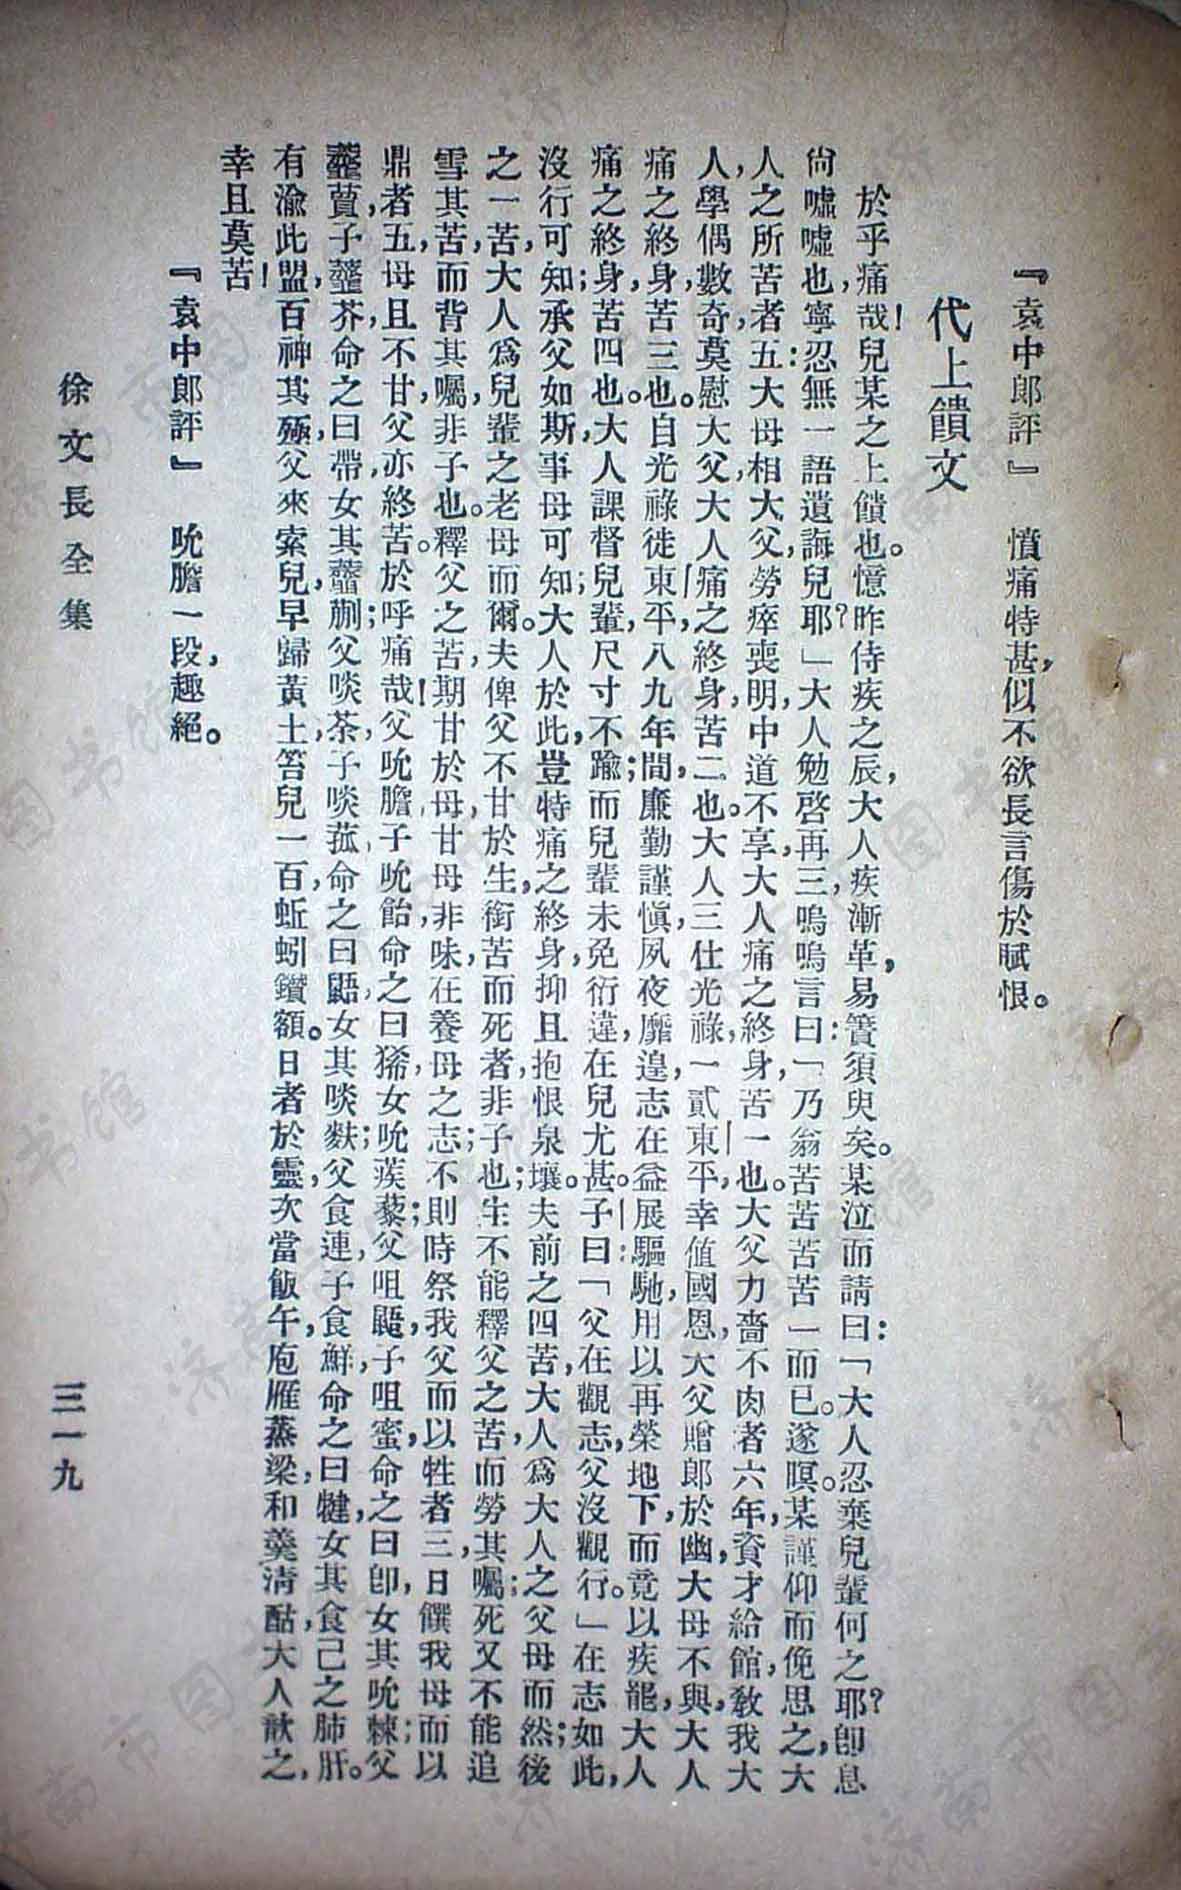 『袁中郎評』　憤痛特甚，似不欲長言傷於賦恨。
代上饋文
於乎痛哉！兒某之上饋也。憶昨侍疾之辰，大人疾漸革，易簀須臾矣。某泣而請曰：「大人忍棄兒輩何之耶？卽息
尙噓噓也，寧忍無一語遺誨兒耶？」大人勉啓再三，嗚嗚言曰：「乃翁苦苦苦苦」而已。遂瞑。某謹仰而俛思之，大
人之所苦者五：大母相大父，勞瘁喪明，中道不享，大人痛之終身，苦一也。大父力嗇不肉者六年，資才給館，敎我大
人，學偶數奇，莫慰大父，大人痛之終身，苦二也。大人三仕光祿，一貳東平，幸値國恩，大父贈郞於幽，大母不與，大人
痛之終身，苦三也。自光祿徙東平，八九年間，廉勤謹愼，夙夜靡遑，志在益展驅馳，用以再榮地下，而竟以疾罷，大人
痛之終身；苦四也。大人課督兒輩，尺寸不踰；而兒輩未免衍違，在兒尤甚。子曰：「父在觀志，父沒觀行。」在志如此，
沒行可知，承父如斯，事母可知；大人於此，豈特痛之終身，抑且抱恨泉壤。夫前之四苦，大人爲大人之父母而然；後
之一苦，大人爲兒輩之老母而爾。夫俾父不甘於生，銜苦而死者，非子也；生不能釋父之苦，而勞其囑；死又不能追
雪其苦，而背其囑，非子也。釋父之苦，期甘於母，甘母非味，在養母之志；不則時祭我父而以牲者三，日饌我母而以
鼎者五，母且不甘，父亦終苦。於呼痛哉！父吮膽，子吮飴，命之曰豨，女吮蒺藜；父咀䶉，子咀蜜，命之曰卽，女其吮棘；父
虀蕒，子虀芥，命之曰帶，女其虀蒯；父啖荼，子啖菰，命之曰䶉，女其啖麩；父食連，子食鮮，命之曰犍，女其食己之肺肝。
有渝此盟，百神其殛，父來索兒，早歸黃土，笞兒一百，蚯蚓鑽額。日者於靈，次當飯午，庖雁蒸梁，和羹淸酤，大人歆之，
幸且莫苦！
『袁中郎評』　吮膽一段，趣絕。
徐文長全集
三一九